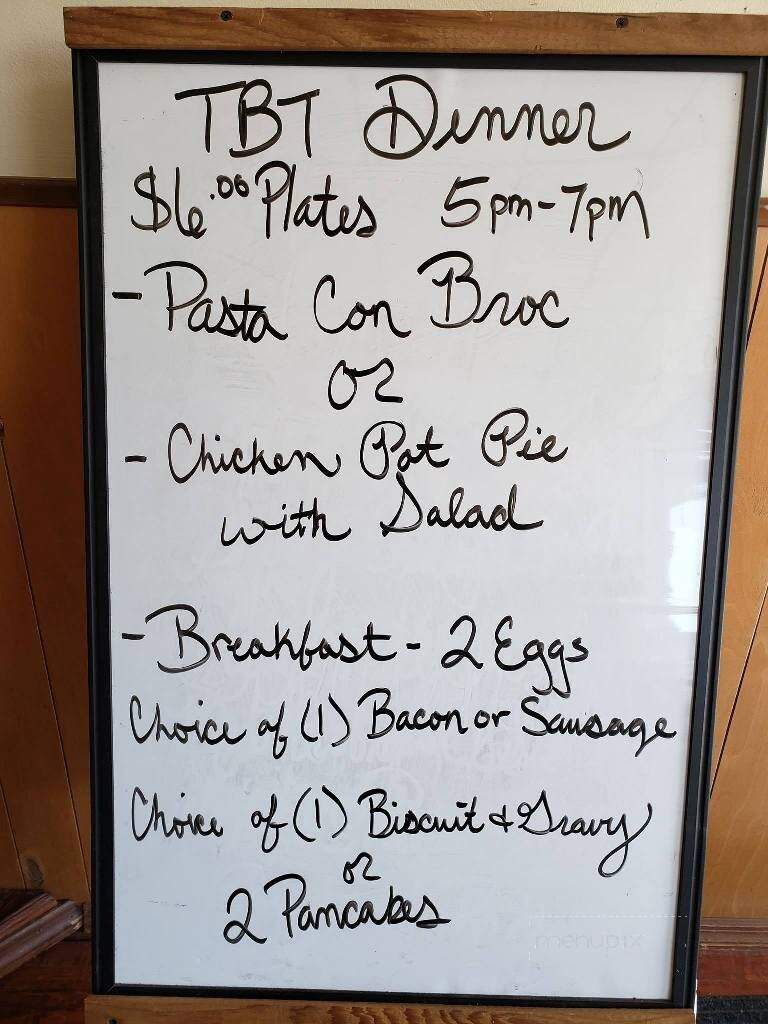 TBT Dinner
$6.00 Plates 5pm-7pm
- Pasta Con Broc
or
- Chicken Pot Pie
with Salad
- Breakfast - 2 Eggs
Choice of (1) Bacon or Sausage
Choice of (1) Biscuit & Gravy
or
2 Pancakes
menupix